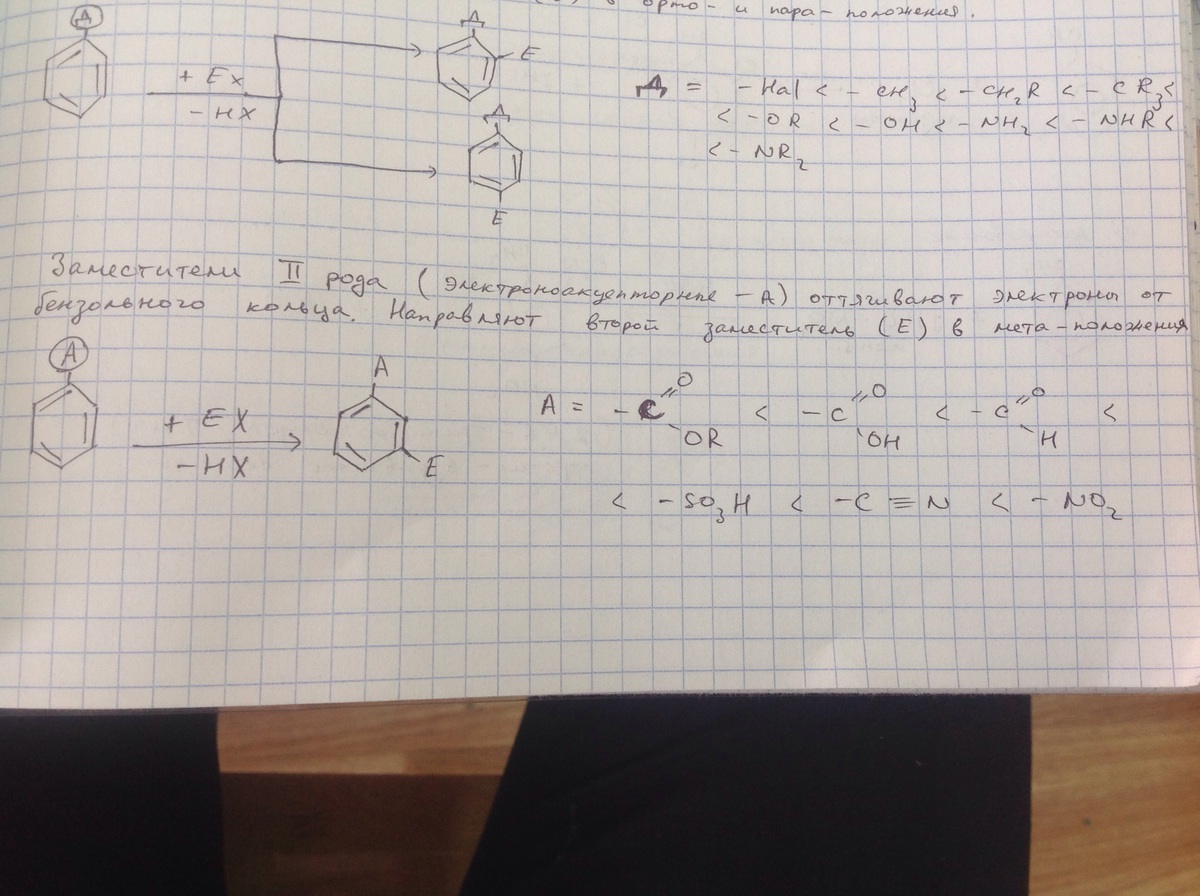 орто- и пара- положения.
Д
+ EX
- HX
Д
E
Д
E
Д = - Hal < - CH3 < - CH2R < - CR3 <
< - OR < - OH < - NH2 < - NHR <
< - NR2
Заместители II рода (электроноакцепторные - А) оттягивают электроны от
бензольного кольца. Направляют второй заместитель (E) в мета-положения
A
+ EX
- HX
A
E
A = - C =O OR < - C =O OH < - C =O H <
< - SO3H < - C ≡ N < - NO2